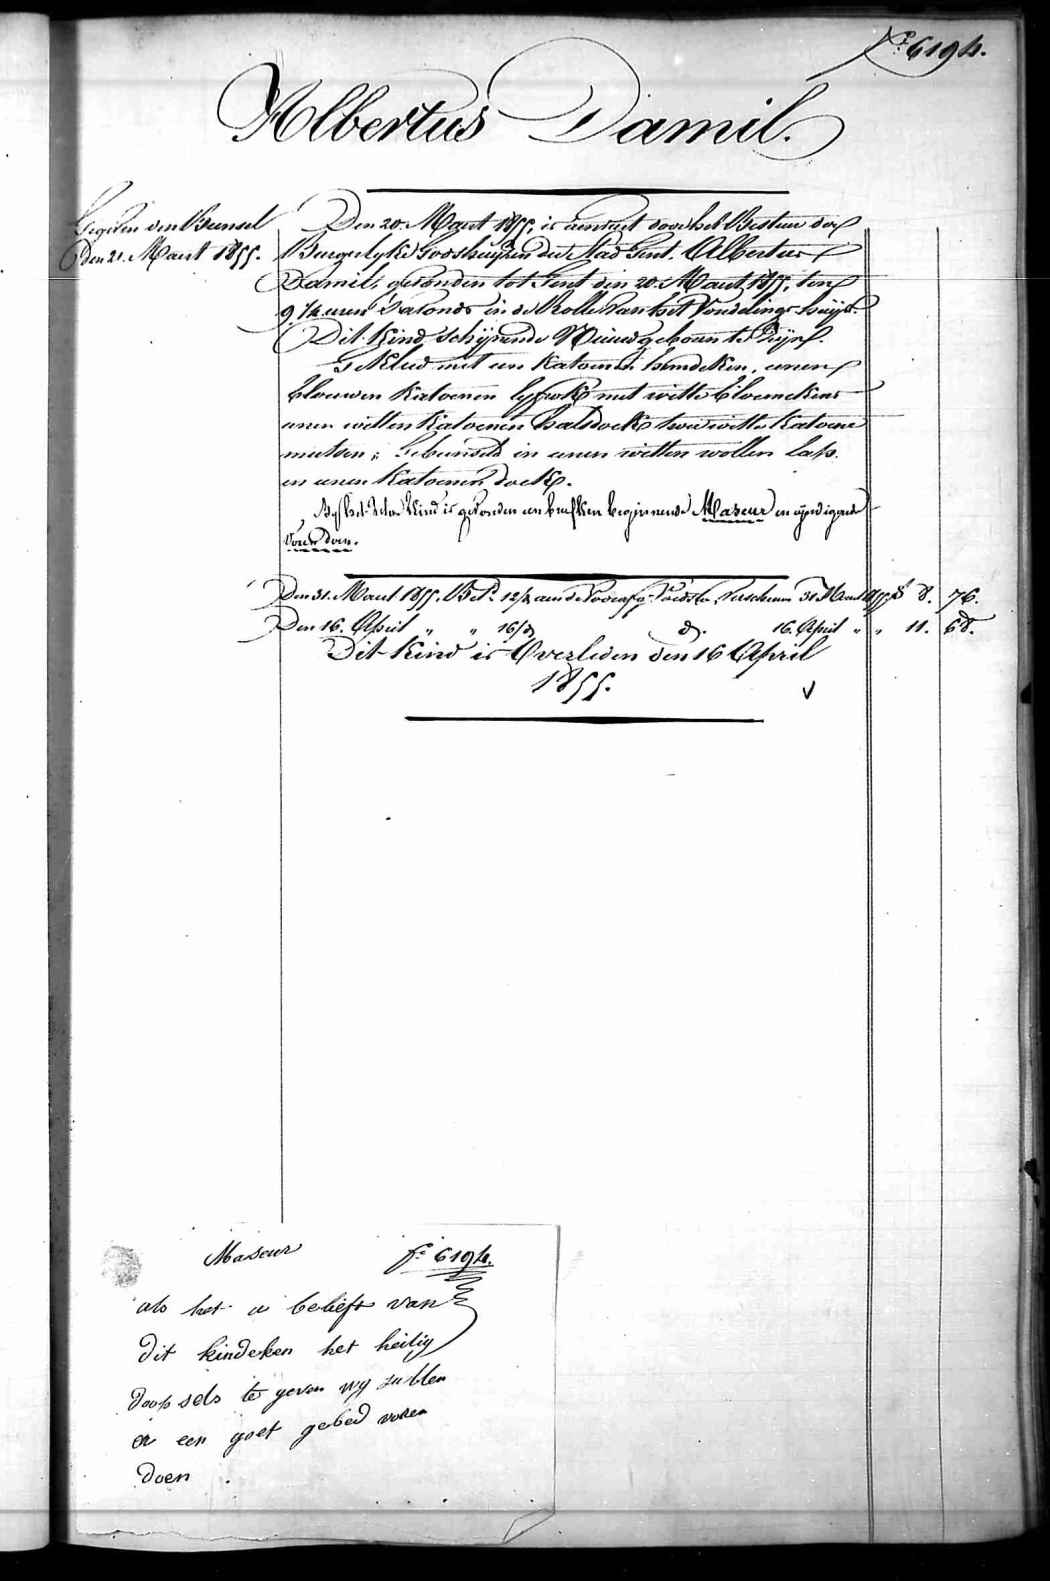 F.° 6194.
Albertus Damil.
Gegeven den Bunsel
den 21. Maart 1855.
Den 20. Maart 1855, is aenvaert door het Bestier der
Burgerlyke Godshuyzen der Stad Gent. Albertus
Damil, gevonden tot Gent den 20. Maart 1855, ten
9 ¼ uren s'avonds in de Rolle van het Vondelings-huys.
Dit Kind schijnende Nieuwgeboren te zijn.
Gekleed met een Katoenen hemdeken, eenen
blouwen Katoenen lyfrok met witte bloemekens
eenen witten Katoenen halsdoek twee witte Katoene
mutsen; Gebunseld in eenen witten wollen lap.
en eenen Katoenen doek.
By het zelve Kind is gevonden een briefken beginnende Maseur en eyndigende
voren doen.
Den 31. Maart 1855. Bet. 12/d aen de Voedster, Verschenen 31 Maart 1855 8. 76.
Den 16. April " " 16/d d°. 16. April " " 11. 68.
Dit Kind is Overleden den 16 April
1855.
Maseur f° 6194.
als het u belieft van
dit kindeken het heilig
doopsels te geven wy zullen
er een goet gebed voren
doen.